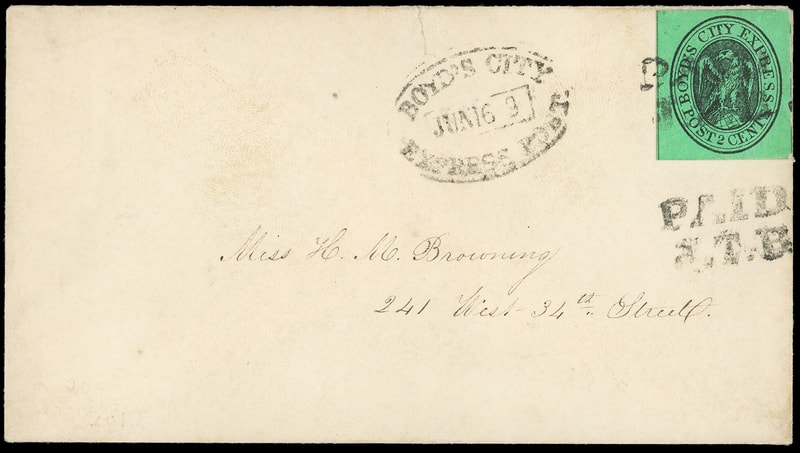 BOYD'S CITY
JUN 16 9
EXPRESS POST.
BOYD'S CITY EXPRESS
POST 2 CENTS
PAID
J.T.B
Miss H. M. Browning
241 West 34th Street.